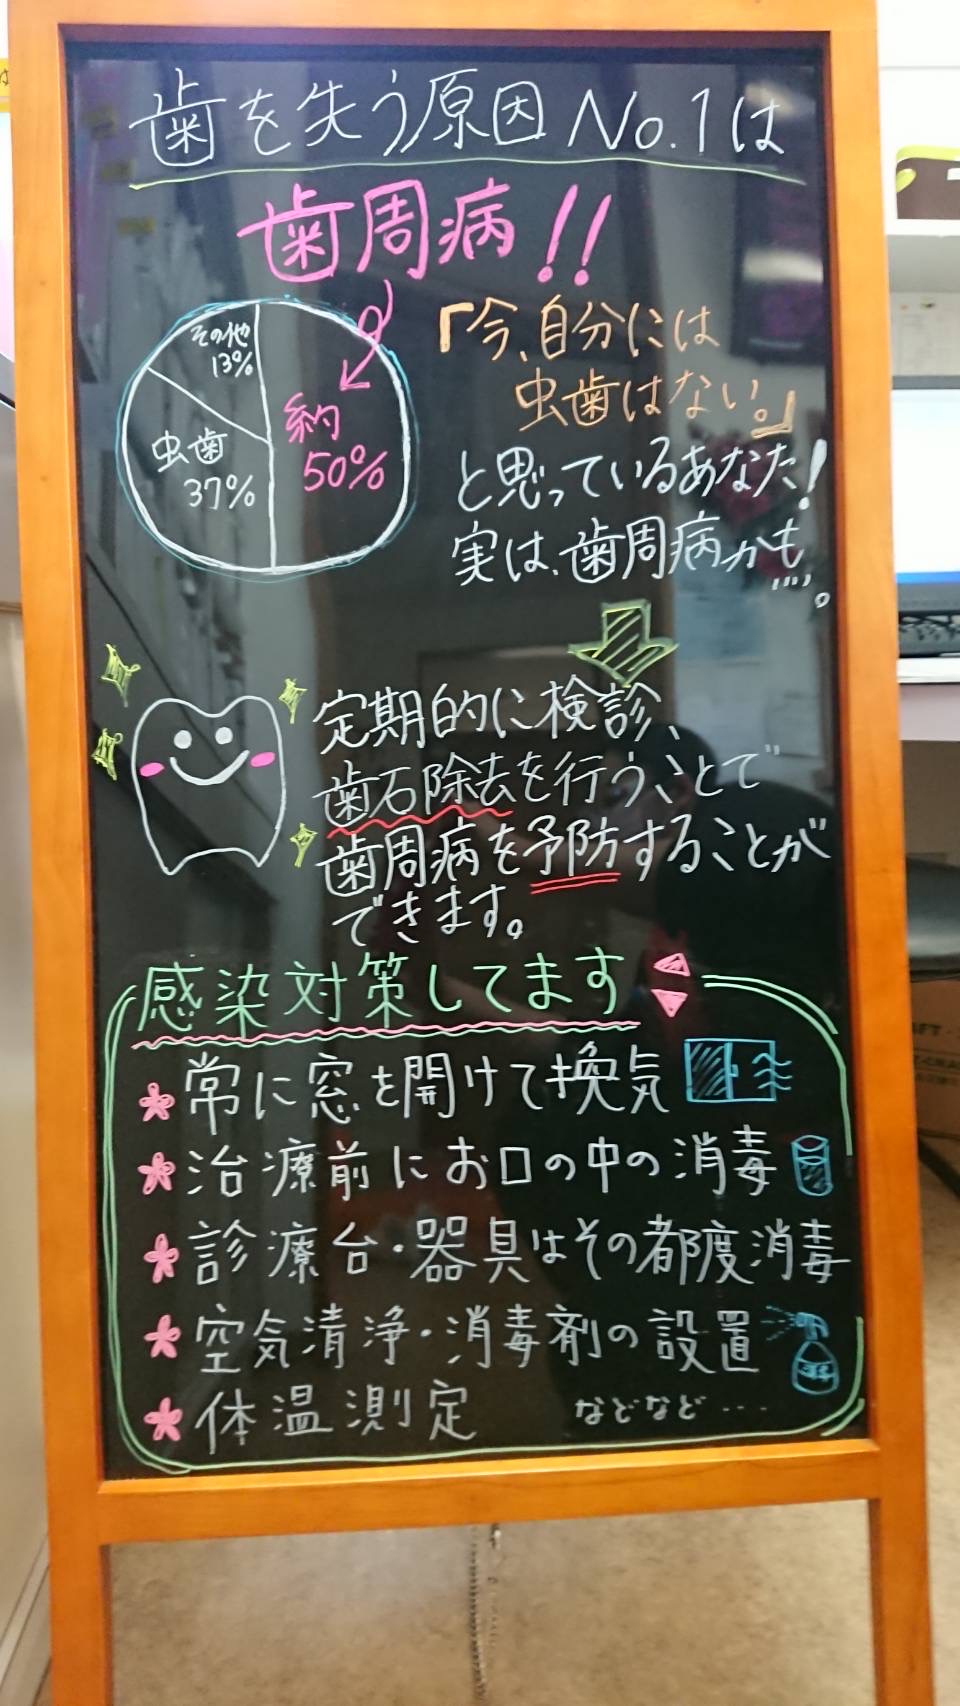 歯を失う原因No.1は
歯周病!!
その他
13%
虫歯
37%
約
50%
『今、自分には
虫歯はない。』
と思っているあなた!
実は、歯周病かも…。
定期的に検診、
歯石除去を行うことで
歯周病を予防することが
できます。
感染対策してます
常に窓を開けて換気
治療前にお口の中の消毒
診療台・器具はその都度消毒
空気清浄・消毒剤の設置
体温測定 などなど…